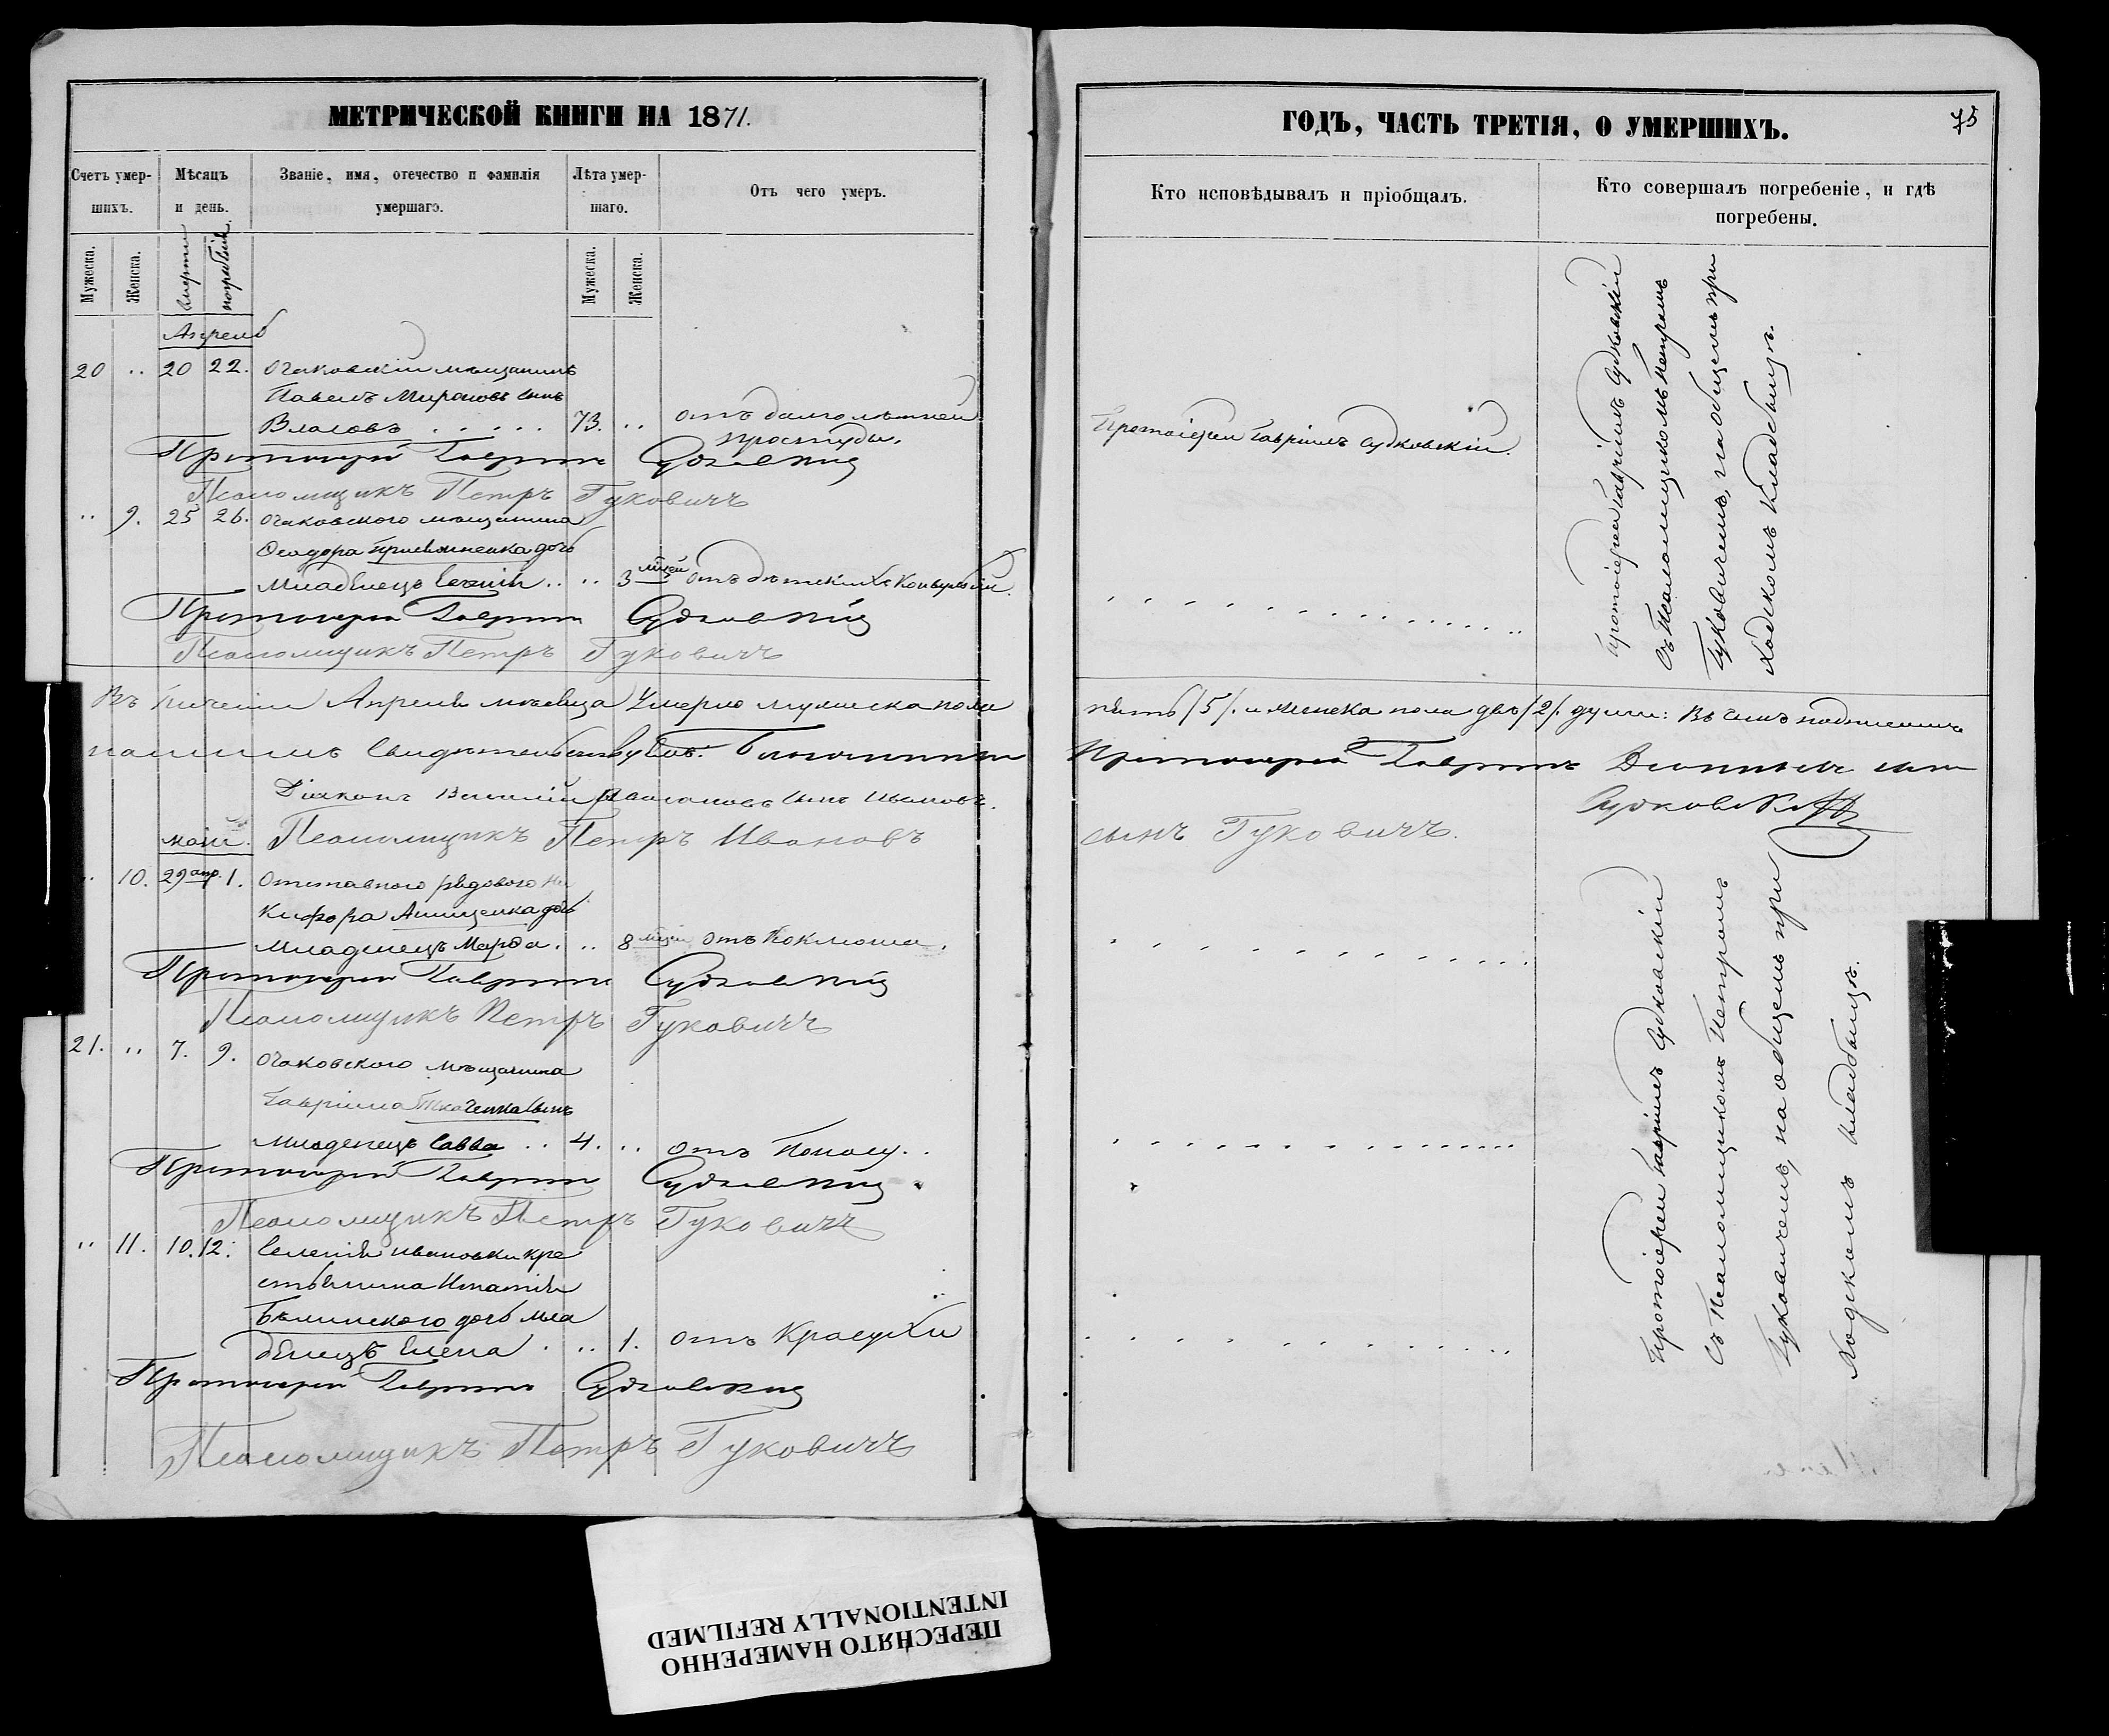 МЕТРИЧЕСКОЙ КНИГИ НА 1871.
Счетъ умер-
шихъ.
Мѣсяцъ
и день.
Званіе, имя, отечество и фамилія
умершаго.
Лѣта умер-
шаго.
Отъ чего умеръ.
Мужеска.
Женска.
смерти
погребенія
Мужеска.
Женска.
Апрель
20 .. 20 22. Очаковскій мѣщанинъ
Павелъ Мироновъ сынъ
Власовъ . . . . . 73. .. отъ долголѣтней
простуды.
Протоіерей Гавріилъ Судковскій
Псаломщикъ Петръ Гуковичъ
.. 9. 25 26. Очаковского мѣщанина
Ѳеодора дочь
Младенецъ .. .. 3 мѣсяц отъ дѣтскихъ конвульсій.
Протоіерей Гавріилъ Судковскій
Псаломщикъ Петръ Гуковичъ
Въ теченіи Апреля мѣсяца Умерло мужеска пола
нашимъ свидѣтельствуемъ:
Діаконъ Василій сынъ Ивановъ.
май. Псаломщикъ Петръ Ивановъ
.. 10. 29 апр. 1. Отставного рядового Ни
кифора Анищенка дочь
Младенецъ Марѳа. .. 8 мѣсяц отъ Коклюша.
Протоіерей Гавріилъ Судковскій
Псаломщикъ Петръ Гуковичъ
21. .. 7. 9. Очаковского мѣщанина
Гавріила Ткаченка сынъ
Младенецъ Савва .. 4. .. отъ Поносу..
Протоіерей Гавріилъ Судковскій
Псаломщикъ Петръ Гуковичъ
.. 11. 10. 12. Селенія Ивановки кре
стьянина Игнатія
Бѣлинского дочь мла
денецъ Елена . .. 1. отъ Краснухи
Протоіерей Гавріилъ Судковскій
Псаломщикъ Петръ Гуковичъ
ГОДЪ, ЧАСТЬ ТРЕТІЯ, О УМЕРШИХЪ.
75
Кто исповѣдывалъ и пріобщалъ.
Кто совершалъ погребеніе, и гдѣ
погребены.
Протоіерей Гавріилъ Судковскій.
Протоіерей Гавріилъ Судковскій
съ Псаломщикомъ Петромъ
Гуковичемъ, на общемъ при
ходскомъ кладбищѣ.
пять /5/. и женска пола двѣ /2/. души: Въ чемъ подписомъ
Протоіерей Гавріилъ сынъ
Судковскій
сынъ Гуковичъ.
Протоіерей Гавріилъ Судковскій
Съ Псаломщикомъ Петромъ
Гуковичемъ, на общемъ при
ходскомъ кладбищѣ.
ПЕРЕСНЯТО НАМЕРЕННО
INTENTIONALLY REFILMED